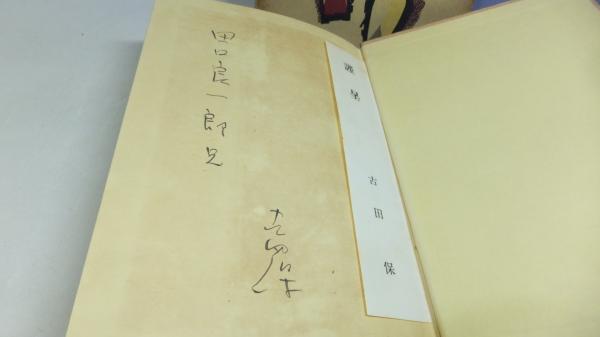 田口良一郎兄
古田保
謹呈
古田保